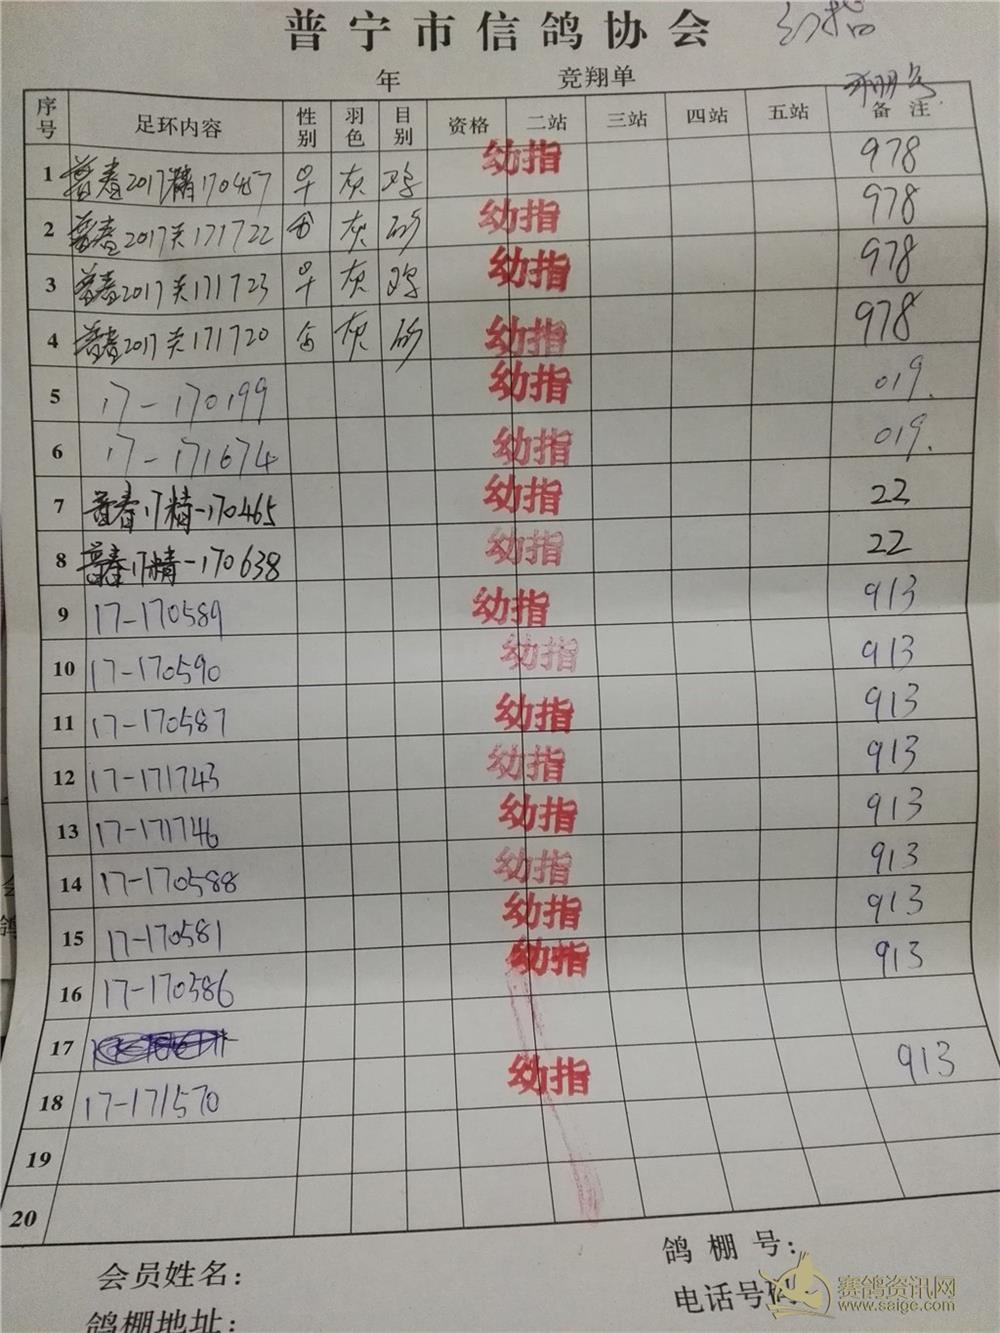 普宁市信鸽协会 幼指
年 竞翔单
序号 足环内容 性别 羽色 目别 资格 二站 三站 四站 五站 备注
1 普春2017精170457 灰 鸡 幼指 978
2 普春2017关171722 灰 砂 幼指 978
3 普春2017关171723 灰 鸡 幼指 978
4 普春2017关171720 灰 砂 幼指 978
5 17-170199 幼指 019.
6 17-171674 幼指 019.
7 普春17精-170465 幼指 22
8 普春17精-170638 幼指 22
9 17-170589 幼指 913
10 17-170590 幼指 913
11 17-170587 幼指 913
12 17-171743 幼指 913
13 17-171746 幼指 913
14 17-170588 幼指 913
15 17-170581 幼指 913
16 17-170586 幼指 913
17
18 17-171570 幼指 913
19
20
会员姓名: 鸽棚号:
鸽棚地址: 电话号码
赛鸽资讯网
www.saige.com